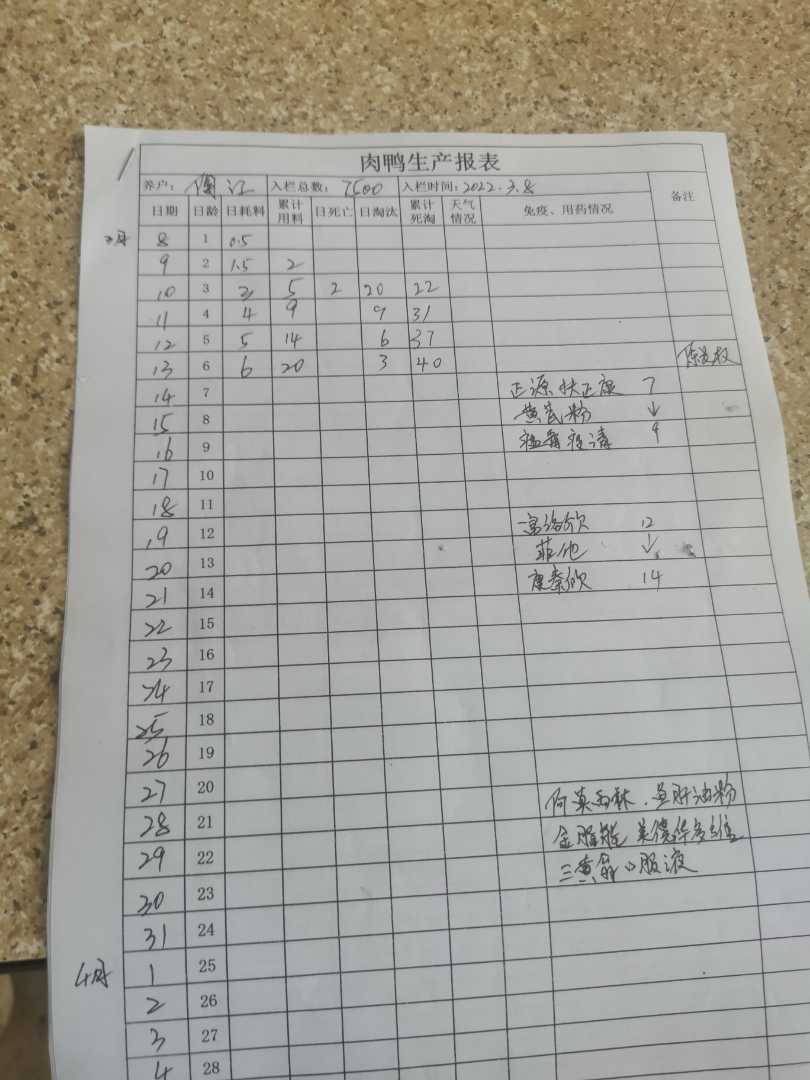 肉鸭生产报表
养户： 入栏总数：7500 入栏时间：2022.3.8 备注
日期 日龄 日耗料 累计用料 日死亡 日淘汰 累计死淘 天气情况 免疫、用药情况
8 1 0.5
9 2 1.5 2
10 3 3 5 2 20 22
11 4 4 9 9 31
12 5 5 14 6 37
13 6 6 20 3 40
14 7 正源 扶正康 7
15 8 黄芪粉 ↓
16 9 9
17 10
18 11
19 12 12
20 13 ↓
21 14 14
22 15
23 16
24 17
25 18
26 19
27 20 阿莫西林．鱼肝油粉
28 21
29 22 口服液
30 23
31 24
4月 1 25
2 26
3 27
4 28